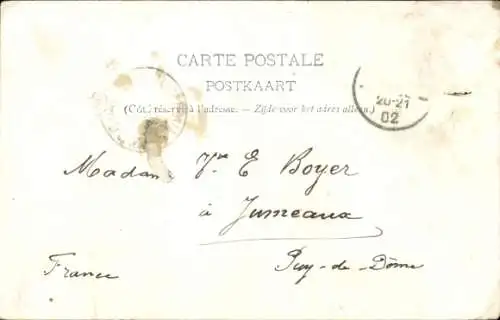 CARTE POSTALE
POSTKAART
(Côté réservé à l'adresse. — Zijde voor het adres alleen.)
20-21
02
Madame Vve E Boyer
à Jumeaux
Puy-de-Dôme
France